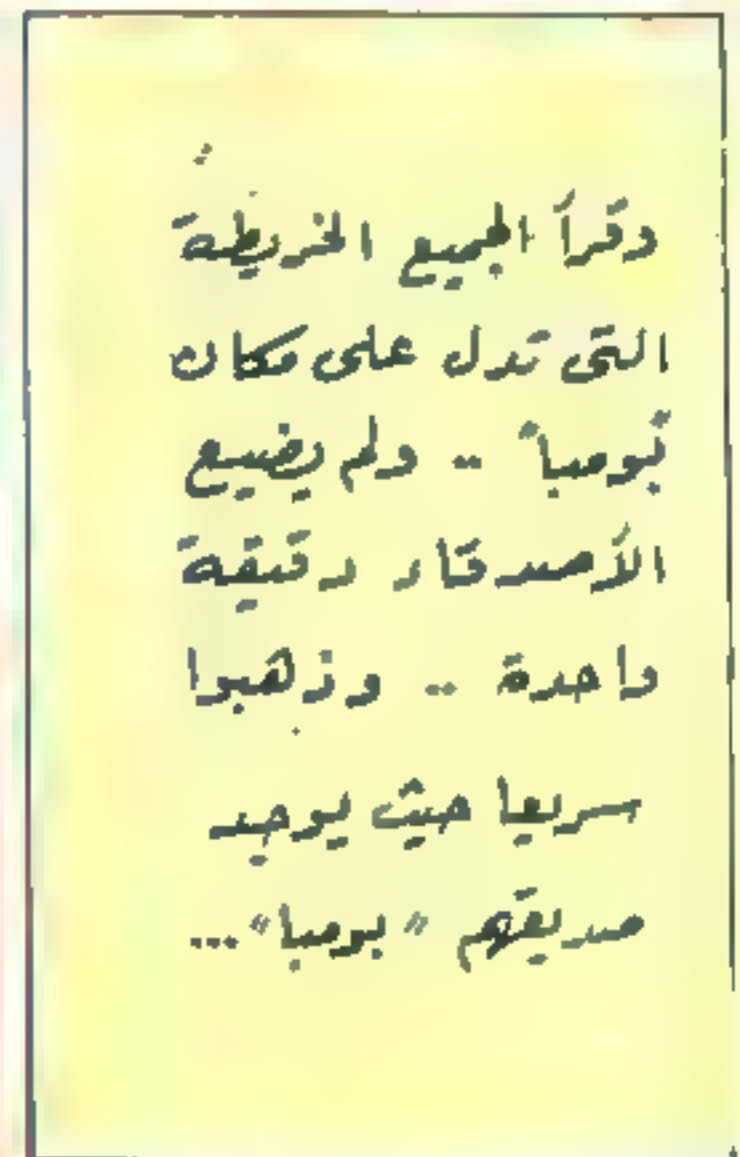 وقرأ الجميع الخريطة
التى تدل على مكان
"بومبا" .. ولم يضيع
الأصدقاء دقيقة
واحدة .. وذهبوا
سريعا حيث يوجد
صديقهم "بومبا" ...